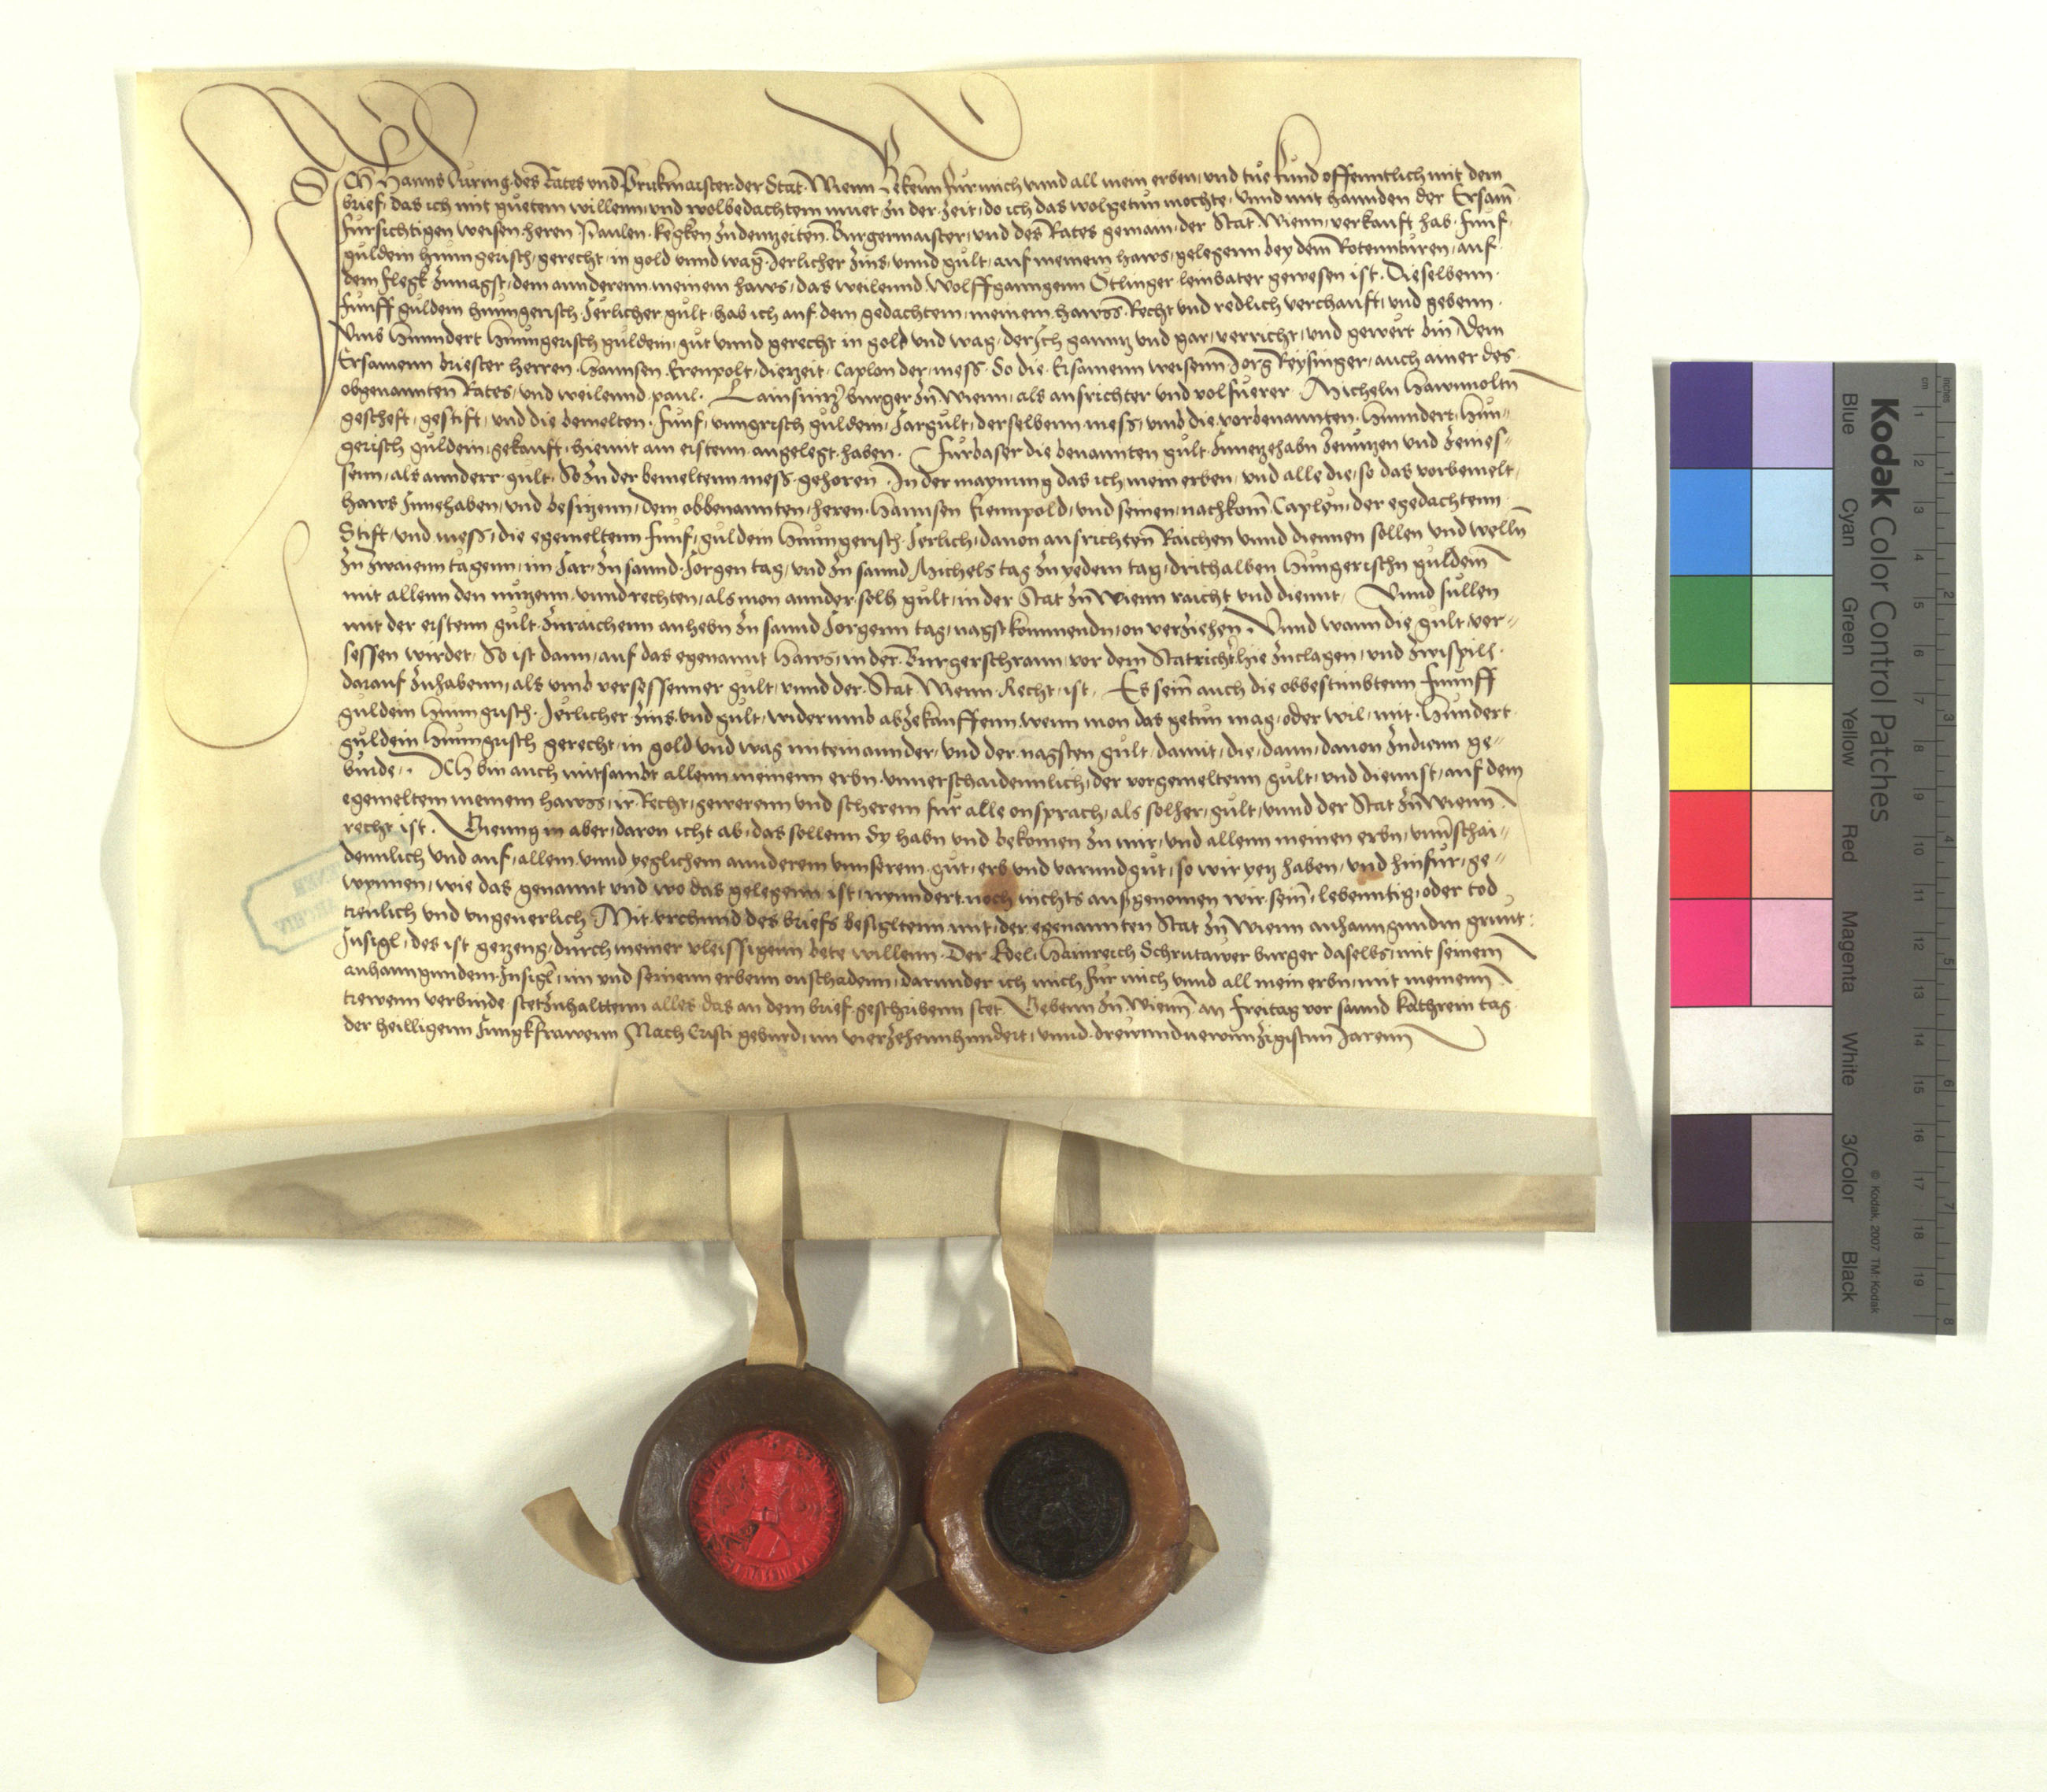 Ich Hanns During des Rates vnd Prukmaister der Stat Wienn Bekenn fur mich vnnd all mein erben, vnd tue kund offenntlich mit dem
brief, das ich mit guetem willenn, vnd wolbedachtem muet zu der zeit, do ich das wolgetun mochte, vnnd mit hannden der Ersam̄
fursichtigen weisen heren Paulen Kegken zudenzeiten Burgermaister, vnd des Rates gemain, der Stat Wienn, verkauft hab funf
guldein hunngerisch, gerecht, in gold vnnd wag Jerlicher zins, vnnd gult, auf meinem haws, gelegenn bey dem Rotennturen, auf
dem flegk zunagst, dem annderenn meinem haws, das weilennd Wolffganngenn Otlinger leinbater gewesen ist. Dieselbenn
funff guldein hunngerisch Jerlicher gult, hab ich auf dem gedachtem, meinem hawss Recht vnd redlich verchauft, vnd gebenn
vmb hunndert hunngerisch guldein, gut vnnd gerecht in gold vnd wag, der ich ganntz vnd gar, verricht, vnd gewert bin, Dem
Ersamenn briester herren Hannsen Erenpolt, dietzeit Caplan der mess So die Ersamenn weisenn Jorg Keysinger, auch ainer des
obgenannten Rates, vnd weilennd paul Lainsintz burger zu Wienn, als ausrichter vnd volfuerer Micheln Hawnnoltn
gescheft, gestift, vnd die bemelten funf, vnngrisch guldein, Jargult, derselbenn mess, vmb die vorbenannten hunndert, hun-
gerisch guldein, gekauft, hiemit am erstenn angelegt haben. Furbaser die benannten gult Innezehabn zenutzen vnd zenies-
senn, als annderr gult, So zu der bemeltenn mess gehoren. In der maynung das ich, mein erben, vnd alle die, so das vorbemelt
haws Innehaben, vnd besitzenn, dem obbenannten, heren Hannsen Erennpold, vnd seinen, nachkom̄ Caplen, der egedachtenn
Stift, vnd mess, die egemeltenn funf, guldein hunngerisch Jerlich, dauon ausrichten Raichen vnnd diennen sollen vnd welln̄
zu zwaienn tagenn, im Jar, zu sannd Jorgen tag, vnd zu sannd Michels tag zu yedem tag, drithalben hungerischn guldein
mit allenn den nutzenn, vnnd rechten, als mon annder solh gult, in der Stat zu Wienn raicht vnd diennt, Vnnd sullen
mit der erstenn gult zuraichenn anhebn zu sannd Jorgenn tag, nagst kommendn, on verziehen. Vnnd wann die gult, ver-
sessen wirdet, So ist dann, auf das egenannt haws, in der Burgerschrann, vor dem Statrichter hie zuclagen, vnd zwispilh
darauf zuhabenn, als vmb versessenner gult, vnnd der Stat Wienn Recht, ist. Es sein auch die obbestimbtenn funnff
guldein hunngrisch Jerlicher zins, vnd gult, widerumb abzekauffenn, wenn mon das getun mag, oder wil, mit hundert
guldein hunngrisch gerecht, in gold vnd wag miteinannder, vnd der nagsten gult, damit, die, dann, dauon zudienn ge-
burde. Ich bin auch mitsambt allenn meinenn erbn vnuerschaidennlich, der vorgemeltenn gult, vnd diennst, auf dem
egemeltem meinem hawss, ir Recht, gewerenn vnd scherem fur alle onsprach, als solher, gult, vnnd der Stat zu Wienn
recht ist. Gienng in aber, daron icht ab, das sollenn Sy habn vnd bekomen zu mir, vnd allenn meinen erbn, vnuerschai-
dennlich vnd auf, allem vnnd yeglichem annderem vnnserem gut, erb vnd varundgut, so wir yetz haben, vnd hinfur, ge-
wynnen, wie das genannt vnd wo das gelegenn ist, nynndert noch nichts ausgenomen wir sein, lebenntig, oder tod
treulich vnd vngeuerlich Mit vrchund des briefs besigltenn mit, der egenannten Stat zu Wienn anhanngundm grunt
Insigl, des ist getzeug, durch meiner vleissigenn bete willenn Der Edel Hainreich Schrutawer burger daselbs, mit seinem
anhanngundem Insigl, im vnd seinenn erbenn onschadenn, darunder ich mich fur mich vnnd all mein erbn, mit meinenn
trewenn verbinde stet zuhalttenn alles das an dem brief geschribenn stet. Gebenn zu Wienn an freitag vor sannd Kathrein tag
der heilligenn Jungkfrawenn Nach Cristi geburd, im vierzehennhundert, vnnd drewunndnewnzigistnn Jarenn
Kodak Color Control Patches
Blue Cyan Green Yellow Red Magenta White 3/Color Black
© Kodak, 2007 TM: Kodak
cm 1 2 3 4 5 6 7 8 9 10 11 12 13 14 15 16 17 18 19
inches 1 2 3 4 5 6 7 8